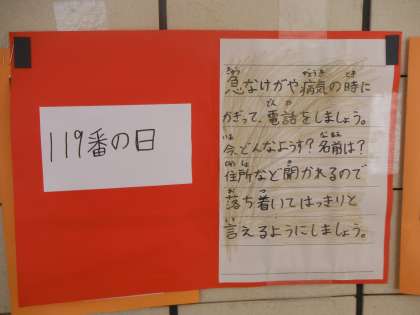 119番の日
急なけがや病気の時に
かぎって、電話をしましょう。
今、どんなようす?名前は?
住所など聞かれるので
落ち着いてはっきりと
言えるようにしましょう。